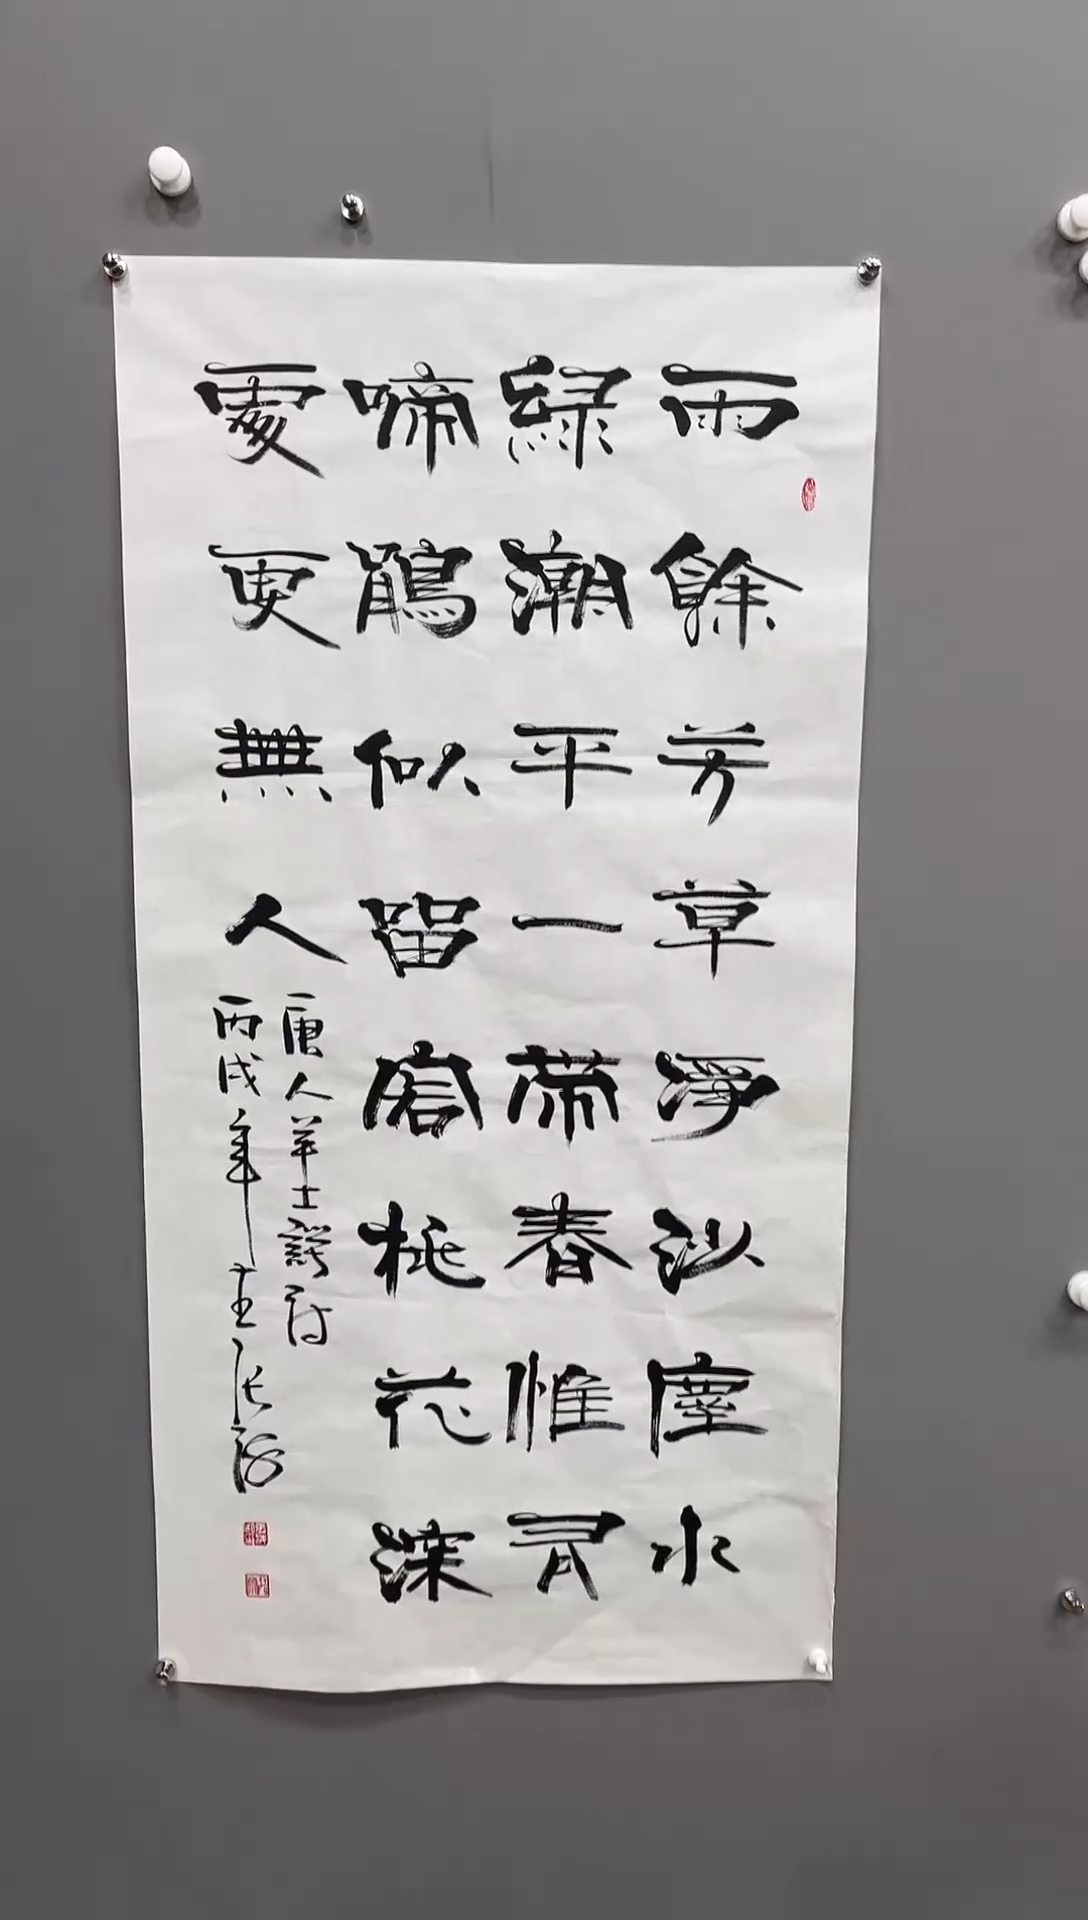 雨餘芳草淨沙塵水
綠潮平一帶春惟有
啼鵑似留客桃花深
處更無人
唐人羊士諤詩
丙戌年